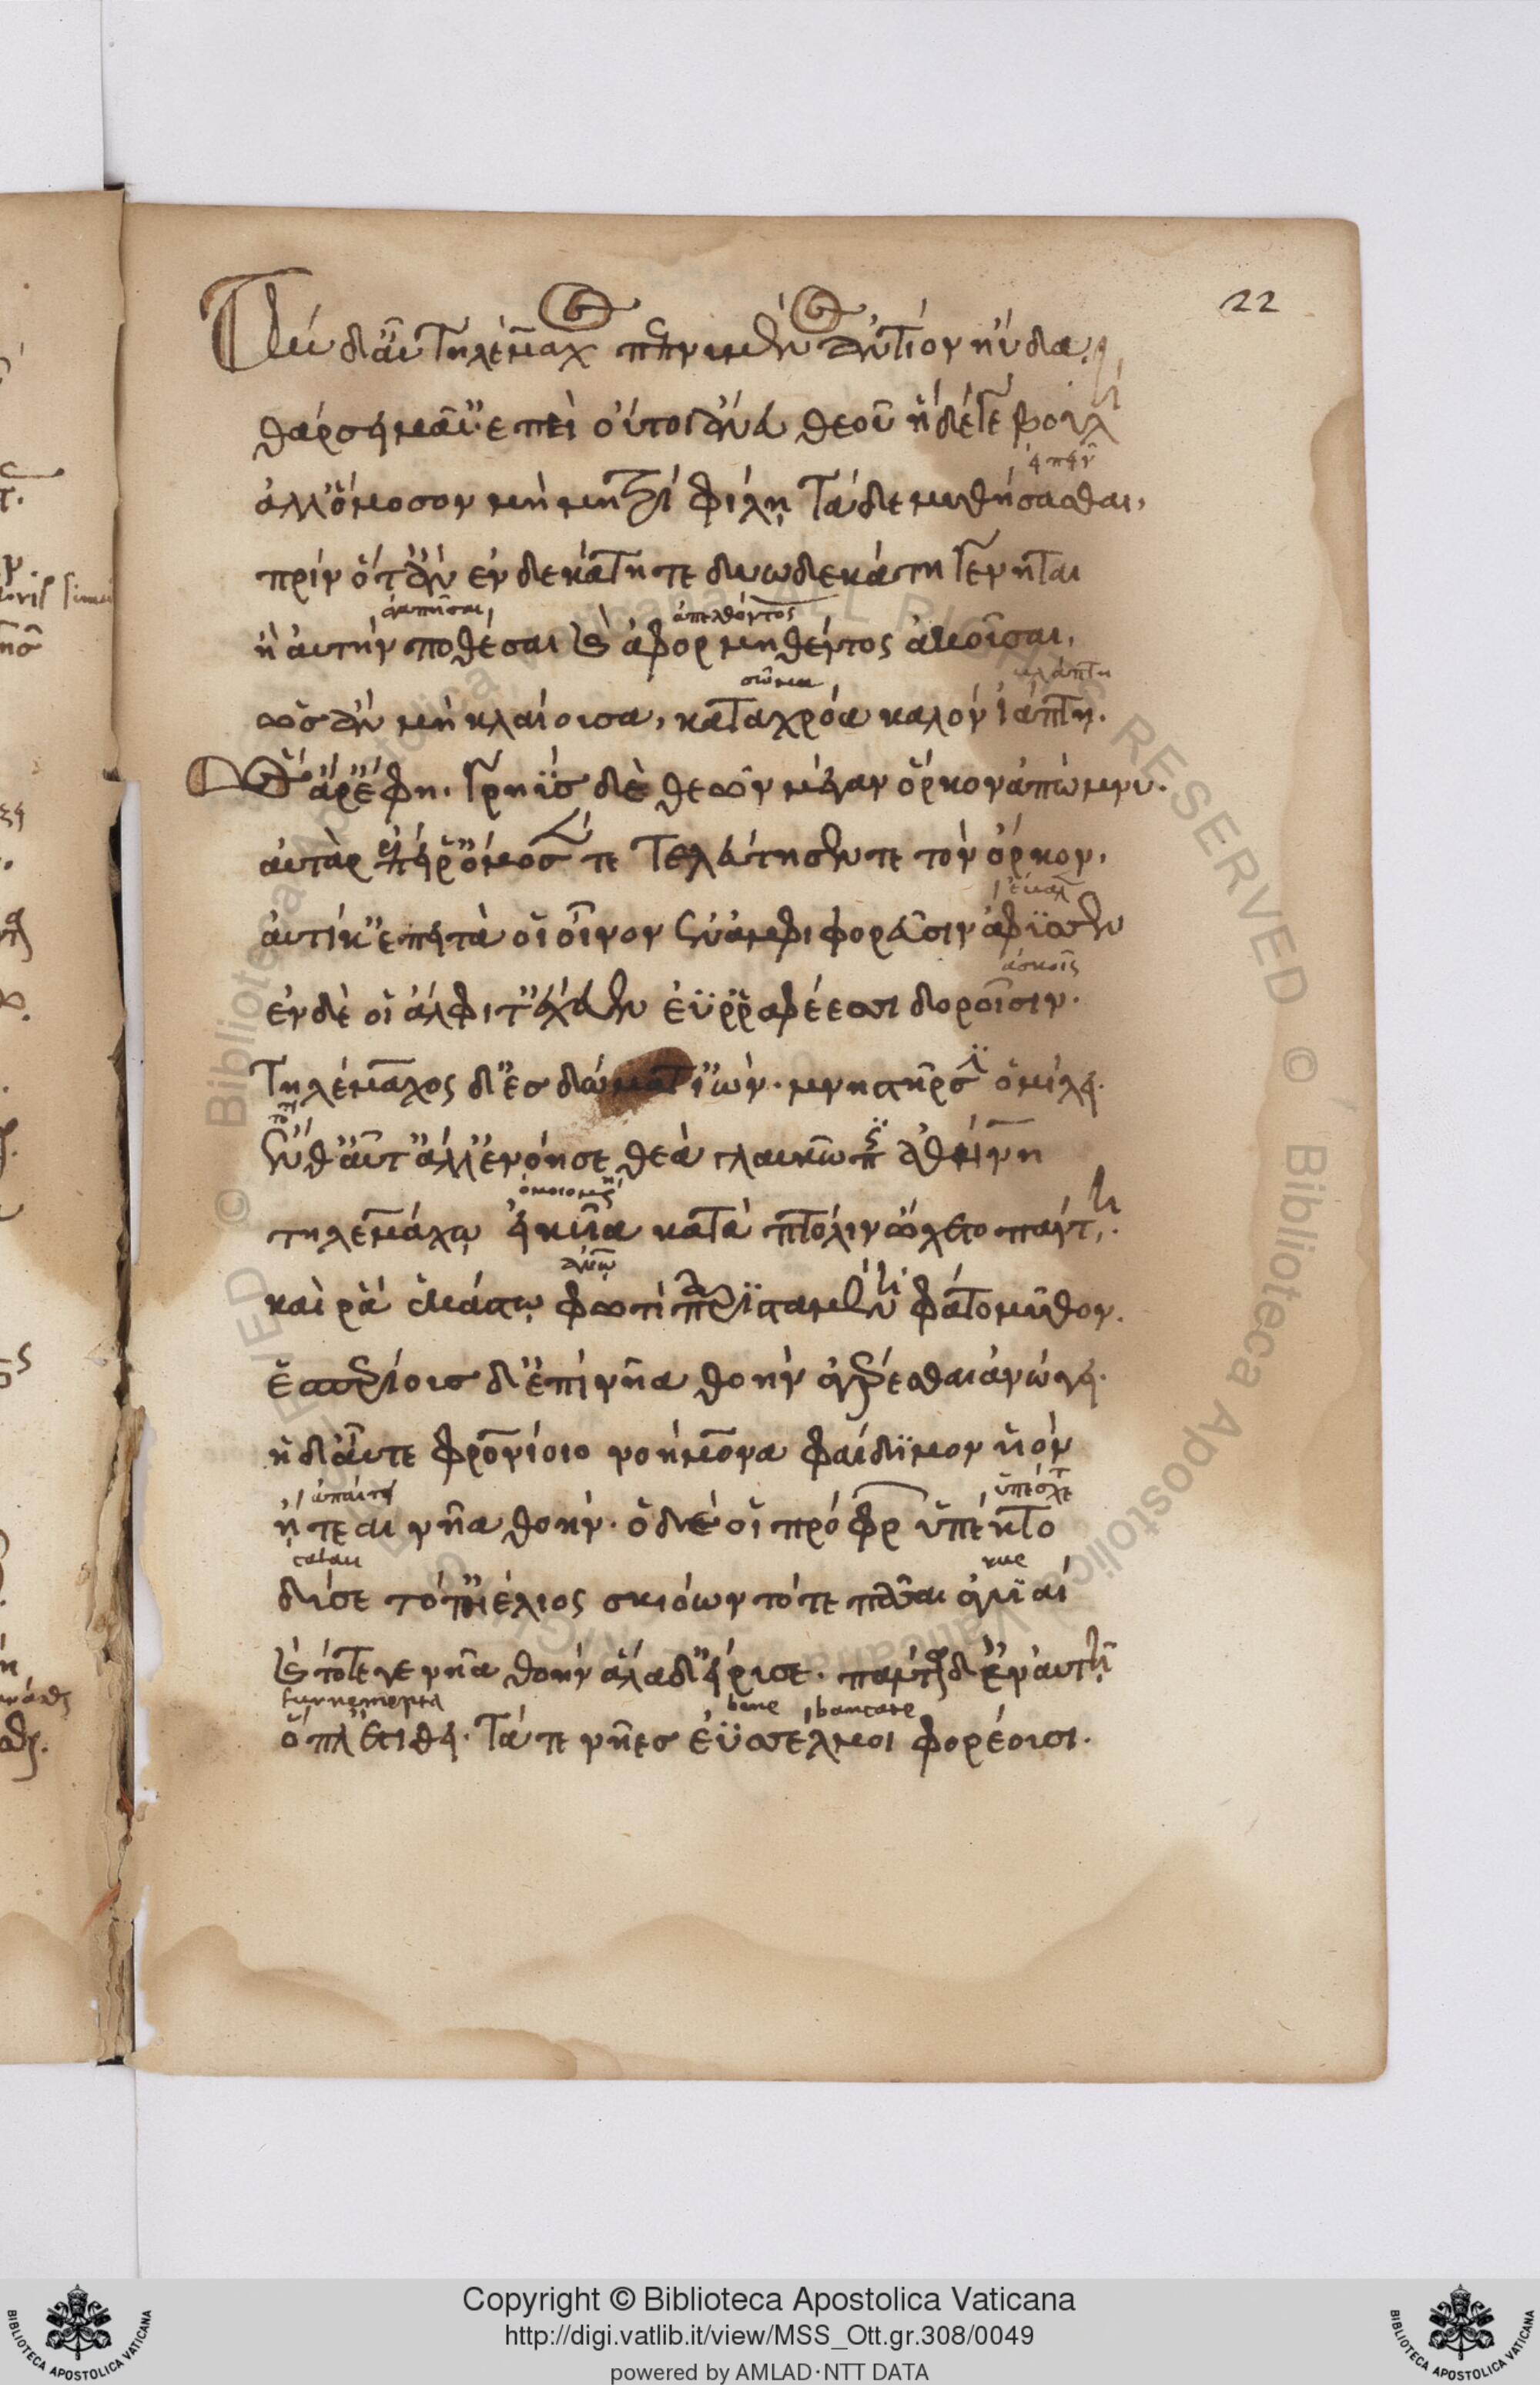 22
Τὴν δ' αὖ Τηλέμαχος πεπνυμένος ἀντίον ηὔδα
θάρσει μαῖ' ἐπεὶ οὔτοι ἄνευ θεοῦ ἥδέ γε βουλή
εἰπεῖν
ἀλλ' ὄμοσον μὴ μητρὶ φίλῃ τάδε μυθήσασθαι,
πρίν ὅτ' ἂν ἑνδεκάτη τε δυωδεκάτη γένηται
ἀπελθόντος
ἢ αὐτὴν ποθέσαι καὶ ἀφορμηθέντος ἀκοῦσαι,
σῶμα
ὡς ἂν μὴ κλαίουσα, κατὰ χρόα καλὸν ἰάπτῃ.
Ὣς ἄρ' ἔφη. γρηῢς δὲ θεῶν μέγαν ὅρκον ἀπώμνυ.
αὐτὰρ ἐπεί ῥ' ὄμοσέν τε τελεύτησέν τε τὸν ὅρκον,
αὐτίκ' ἔπειτά οἱ οἶνον ἐν ἀμφιφορεῦσιν ἄφυσσεν
ἀσκοῖς
ἐν δέ οἱ ἄλφιτ' ἔχευεν ἐϋρραφέεσσι δοροῖσιν.
Τηλέμαχος δ' ἐς δώματ' ἰὼν μνηστῆρσιν ὁμίλει.
ἔνθ' αὖτ' ἄλλ' ἐνόησε θεὰ γλαυκῶπις ἀθήνη
τηλεμάχῳ εἰκυῖα κατὰ πτόλιν ᾤχετο πάντῃ.
καί ῥα ἑκάστῳ φωτὶ παρισταμένη φάτο μῦθον.
ἑσπερίους δ' ἐπὶ νῆα θοὴν ἀγέρεσθαι ἀνώγει.
ἡ δ' αὖτε φρονίοιο νοήμονα φαίδιμον υἱὸν
ὑπέσχετο
ᾔτεε νῆα θοήν. ὁ δέ οἱ πρόφρων ὑπέδεκτο
δύσετό τ' ἠέλιος σκιόωντό τε πᾶσαι ἀγυιαί
καὶ τότε γε νῆα θοὴν ἅλαδ' εἴρυσε. πάντα δ' ἐν αὐτῇ
bene bancate
ὅπλ' ἐτίθει. τά τε νῆες ἐΰσσελμοι φορέουσι.
Copyright © Biblioteca Apostolica Vaticana
http://digi.vatlib.it/view/MSS_Ott.gr.308/0049
powered by AMLAD·NTT DATA
BIBLIOTECA APOSTOLICA VATICANA
BIBLIOTECA APOSTOLICA VATICANA